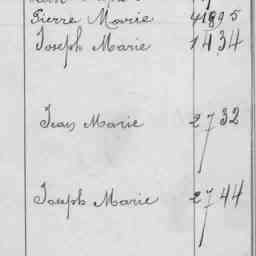 Pierre Marie 41895
Joseph Marie 1434
Jean Marie 2732
Joseph Marie 2744